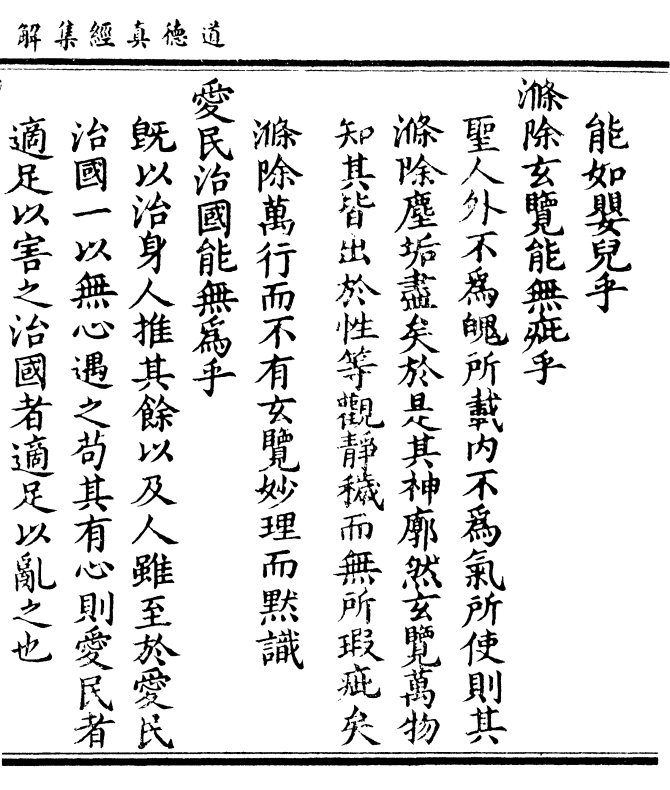 道德真經集解
能如嬰兒乎
滌除玄覽能無疵乎
聖人外不爲魄所載内不爲氣所使則其
滌除塵垢盡矣於是其神廓然玄覽萬物
知其皆出於性等觀靜穢而無所瑕疵矣
滌除萬行而不有玄覽妙理而默識
愛民治國能無爲乎
旣以治身人推其餘以及人雖至於愛民
治國一以無心遇之茍其有心則愛民者
適足以害之治國者適足以亂之也